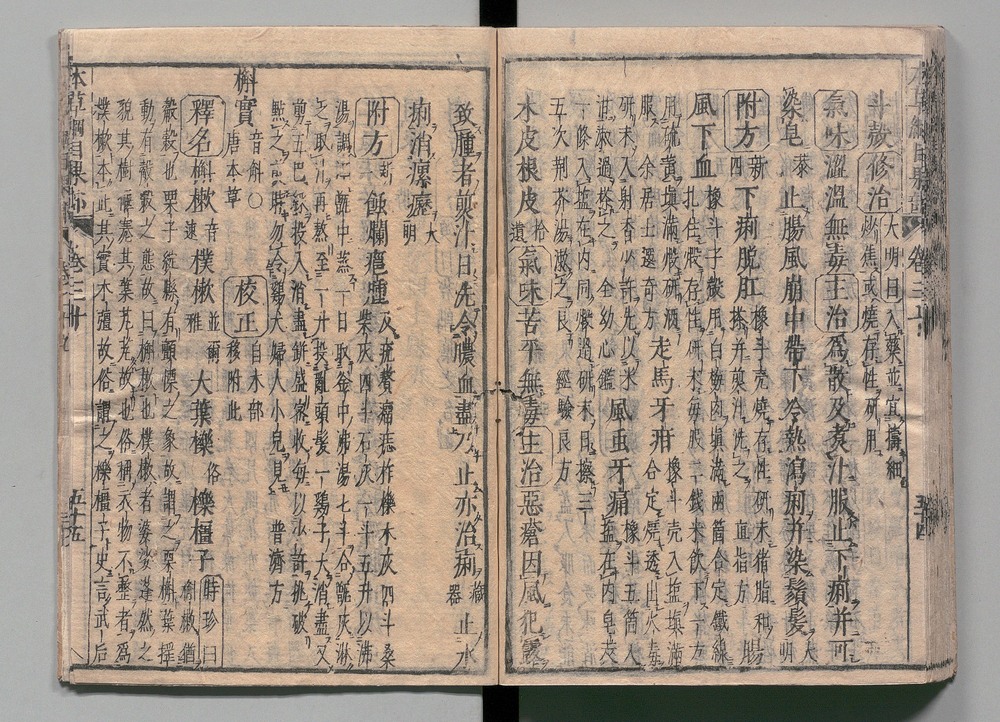 斗殼修治大明曰入藥並宜擣細
炒焦或燒存性研用
氣味澀溫無毒主治為散及煮汁服止下痢并可
染皂恭止腸風崩中帶下冷熱瀉痢并染鬚髮大明
附方新下痢脫肛橡斗壳燒存性研末猪脂和
搽并煎汁洗之 直指方
風下血橡斗子殼用白梅肉填滿兩箇合定鐵線
扎住煅存性研末每服二錢米飲下一方
用硫黃填滿煅研
服 余居士選奇方 走馬牙疳橡斗壳入盐填滿
合定燒透出火毒
研末入射香少許先以米
泔漱過搽之 全幼心鑑 風虫牙痛橡斗五箇入
盐在內皂莢
一條入盐在內同煅過研末日擦三
五次荆芥湯漱之良 經驗良方
木皮根皮拾遺氣味苦平無毒主治惡瘡因風犯露
致腫者煎汁日洗令膿血盡乃止亦治痢藏器止水
痢消瘰癧大明
附方新蝕爛癰腫及疣贅瘤痣柞櫟木灰四斗桑
柴灰四斗石灰一斗五升以沸
湯調濕甑中蒸一日取釜中沸湯七斗合甑灰淋
之取汁再熬至一升投亂頭髮一雞子大消盡又
剪五色綵投入消盡瓶盛密收每以少許挑破
點之勿令雞犬婦人小兒見 普濟方
槲實音斛○唐本草 校正自木部移附此
釋名槲樕音速樸樕並爾雅大葉櫟俗櫟橿子時珍曰槲樕猶
觳觫也栗子綻懸有顫慄之象故謂之栗槲葉搖
動有觳觫之態故曰槲樕也樸樕者婆娑蓬然之
貌其樹偃蹇其葉芃芃故也俗稱衣物不整者為
樸樕本此其實木彊故俗謂之櫟橿子史言武后